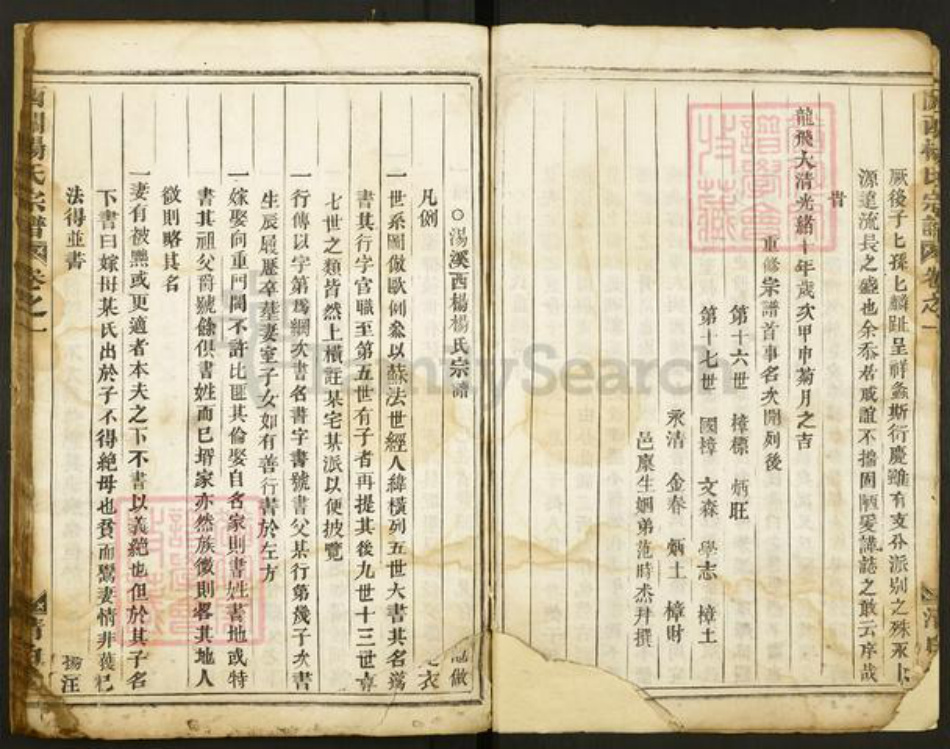 厥後子匕孫匕麟趾呈祥螽斯衍慶雖有支分派别之殊
源遠流長之盛也余忝居戚誼不揣固陋爰誌之敢云序哉
龍飛大清光緒十年歲次甲申菊月之吉
重修宗譜首事名次開列後
第十六世 樟標 炳旺
第十七世 國樟 文森 學志 樟土
永清 金春 炳土 樟財
邑廩生姻弟范時杰拜撰
○湯溪西楊楊氏宗譜
凡例
一世系圖倣歐例叅以蘇法世經人緯橫列五世大書其名
書其行字官職至第五世有子者再提其後九世十三世
七世之類皆然上橫註某宅某派以便披覽
一行傳以字第爲綱次書名書字書號書父某行第幾子次書
生辰履歷卒塟妻室子女如有善行書於左方
一嫁娶向重門閥不許比匪其倫娶自名家則書姓書地或特
書其祖父爵號餘俱書姓而已壻家亦然族微則畧其地人
微則略其名
一妻有被黜或更適者本夫之下不書以義絶也但於其子名
下書曰嫁母某氏出於子不得絶母也貧而鬻妻情非獲已
法得並書